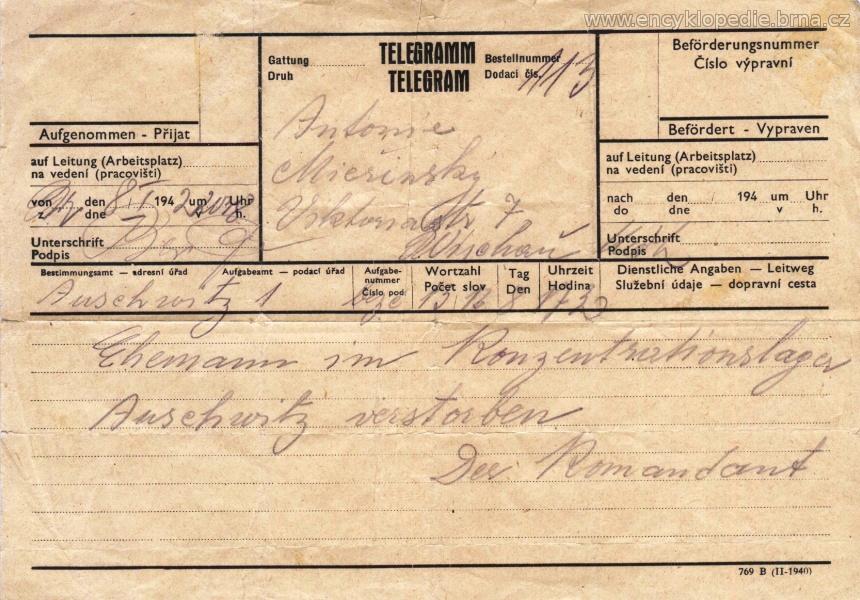 www.encyklopedie.brna.cz
Gattung
Druh
TELEGRAMM
TELEGRAM
Bestellnummer
Dodací čís.
113
Beförderungsnummer
Číslo výpravní
Aufgenommen - Přijat
Befördert - Vypraven
Antonie
Viktoriastr 7
Wischau
auf Leitung (Arbeitsplatz)
na vedení (pracovišti)
von den 8/I 194 2 um Uhr
z dne h.
Unterschrift
Podpis
auf Leitung (Arbeitsplatz)
na vedení (pracovišti)
nach den 194 um Uhr
do dne v h.
Unterschrift
Podpis
Bestimmungsamt — adresní úřad Aufgabeamt — podací úřad
Aufgabe-
nummer
Číslo pod.
Wortzahl
Počet slov
Tag
Den
Uhrzeit
Hodina
Dienstliche Angaben — Leitweg
Služební údaje — dopravní cesta
Auschwitz 1 16 8 1720
Ehemann im Konzentrationslager
Auschwitz verstorben
Der Komandant
769 B (II-1940)